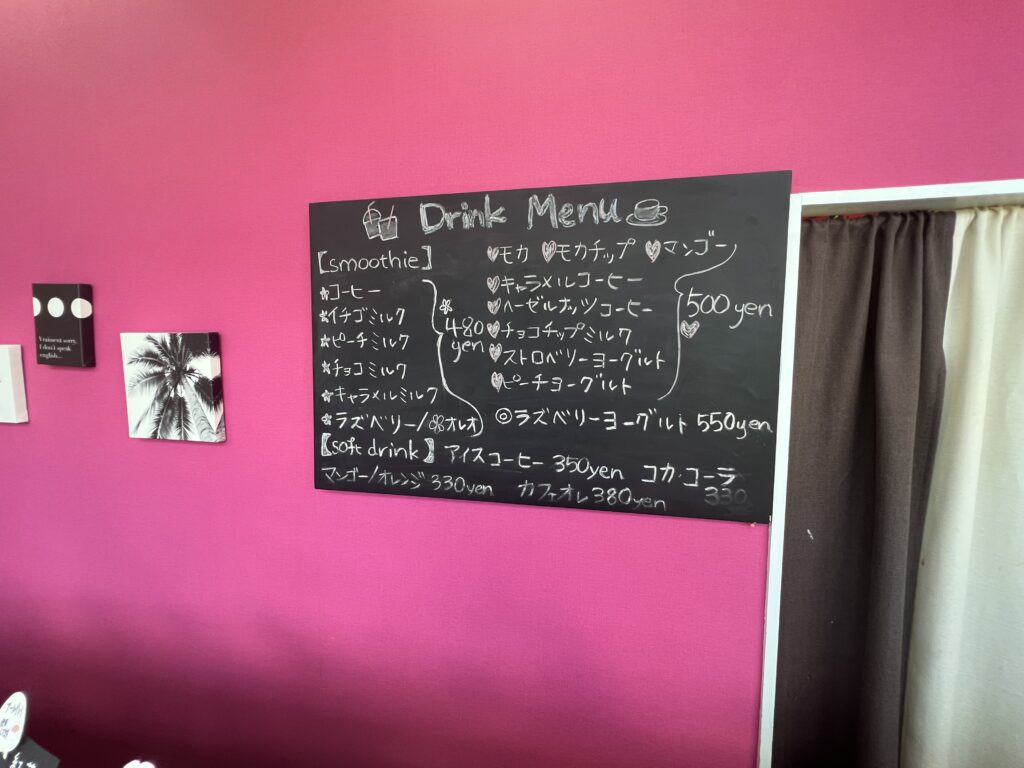 Drink Menu
[smoothie]
コーヒー
イチゴミルク
ピーチミルク
チョコミルク
キャラメルミルク
ラズベリー/オレオ
480
yen
モカ モカチップ マンゴー
キャラメルコーヒー
ヘーゼルナッツコーヒー
チョコチップミルク
ストロベリーヨーグルト
ピーチヨーグルト
500yen
◎ラズベリーヨーグルト 550yen
【soft drink】 アイスコーヒー 350yen コカ・コーラ
マンゴー/オレンジ 330yen カフェオレ 380yen 330
Vraiment sorry,
I don't speak
english...